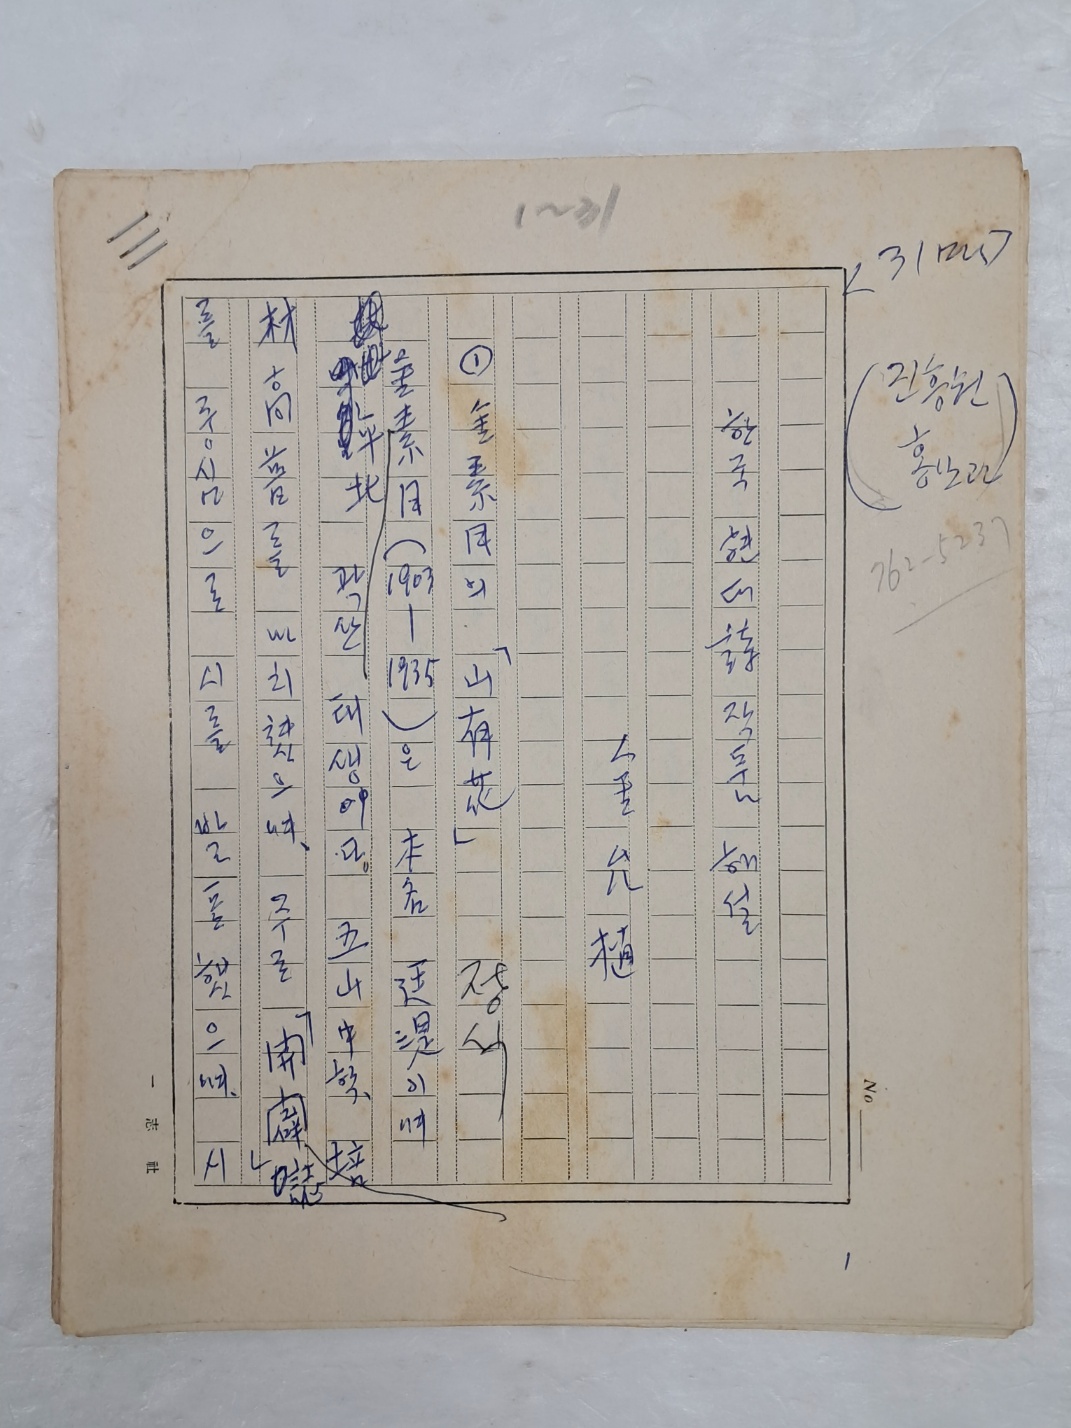 1~31
31매
한국 현대詩 작품 해설
金 允 植
① 金素月의 「山有花」
金素月(1903—1935)은 本名 廷湜이며
平北 곽산 태생이다. 五山中학, 培
材高普를 마치혔으며, 주로 「開闢」
를 중심으로 시를 발표했으며, 시
762-5237
No
1
一志社